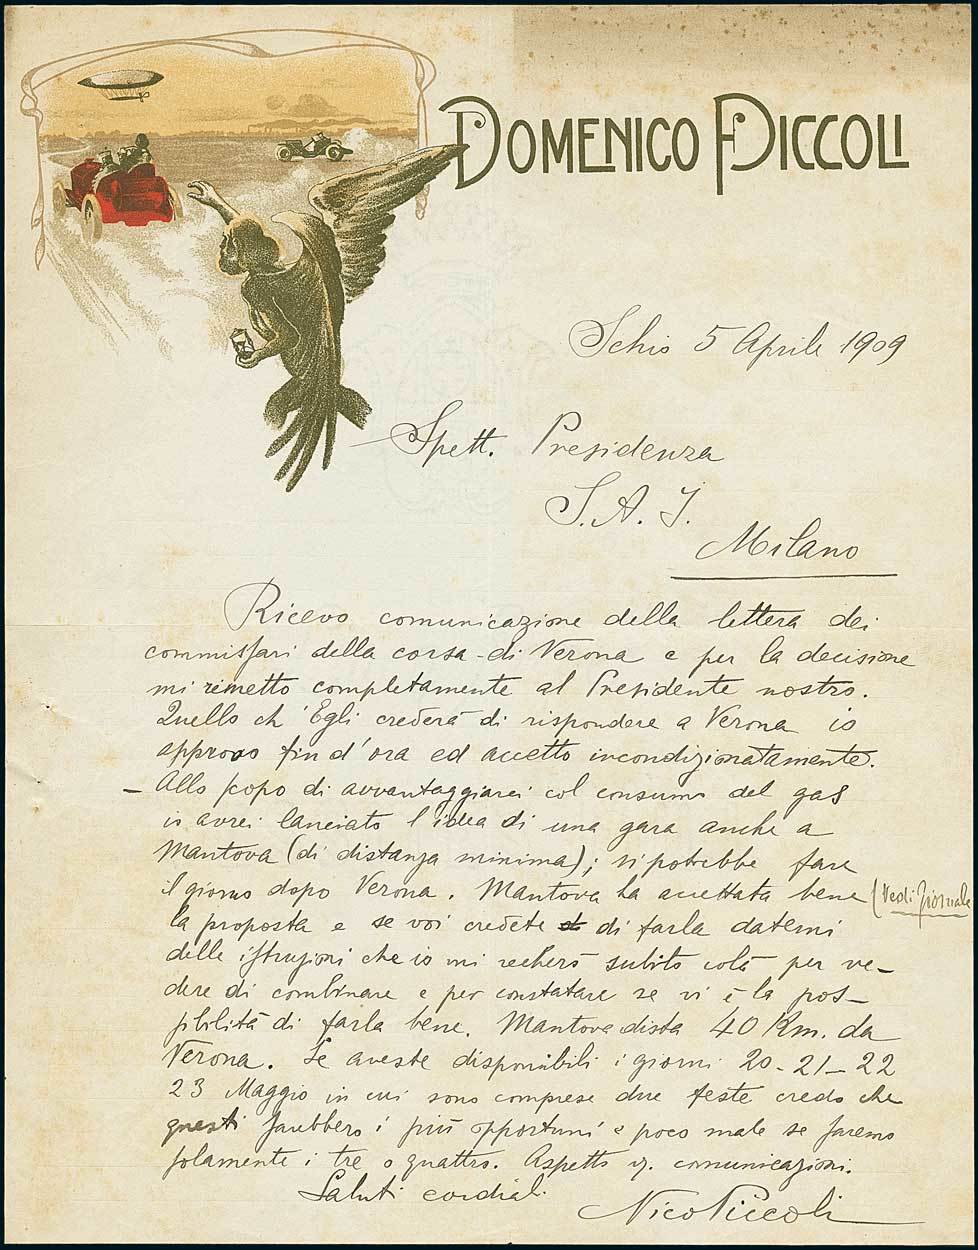 DOMENICO PICCOLI
Schio 5 Aprile 1909
Spett. Presidenza
S. A. I.
Milano
Ricevo comunicazione della lettera dei
commissari della corsa di Verona e per la decisione
mi rimetto completamente al Presidente nostro.
Quello ch'Egli crederà di rispondere a Verona io
approvo fin d'ora ed accetto incondizionatamente.
– Allo scopo di avvantaggiarci col consumo del gas
io avrei lanciato l'idea di una gara anche a
Mantova (di distanza minima); si potrebbe fare
il giorno dopo Verona. Mantova ha accettata bene (Vedi giornale
la proposta e se voi credete di farla datemi
delle istruzioni che io mi recherò subito colà per ve–
dere di combinare e per constatare se vi è la pos–
sibilità di farla bene. Mantova dista 40 Km. da
Verona. Se aveste disponibili i giorni 20-21-22
23 Maggio in cui sono comprese due feste credo che
questi sarebbero i più opportuni e poco male se saremo
solamente i tre o quattro. Aspetto v. comunicazioni.
Saluti cordiali.
Nico Piccoli